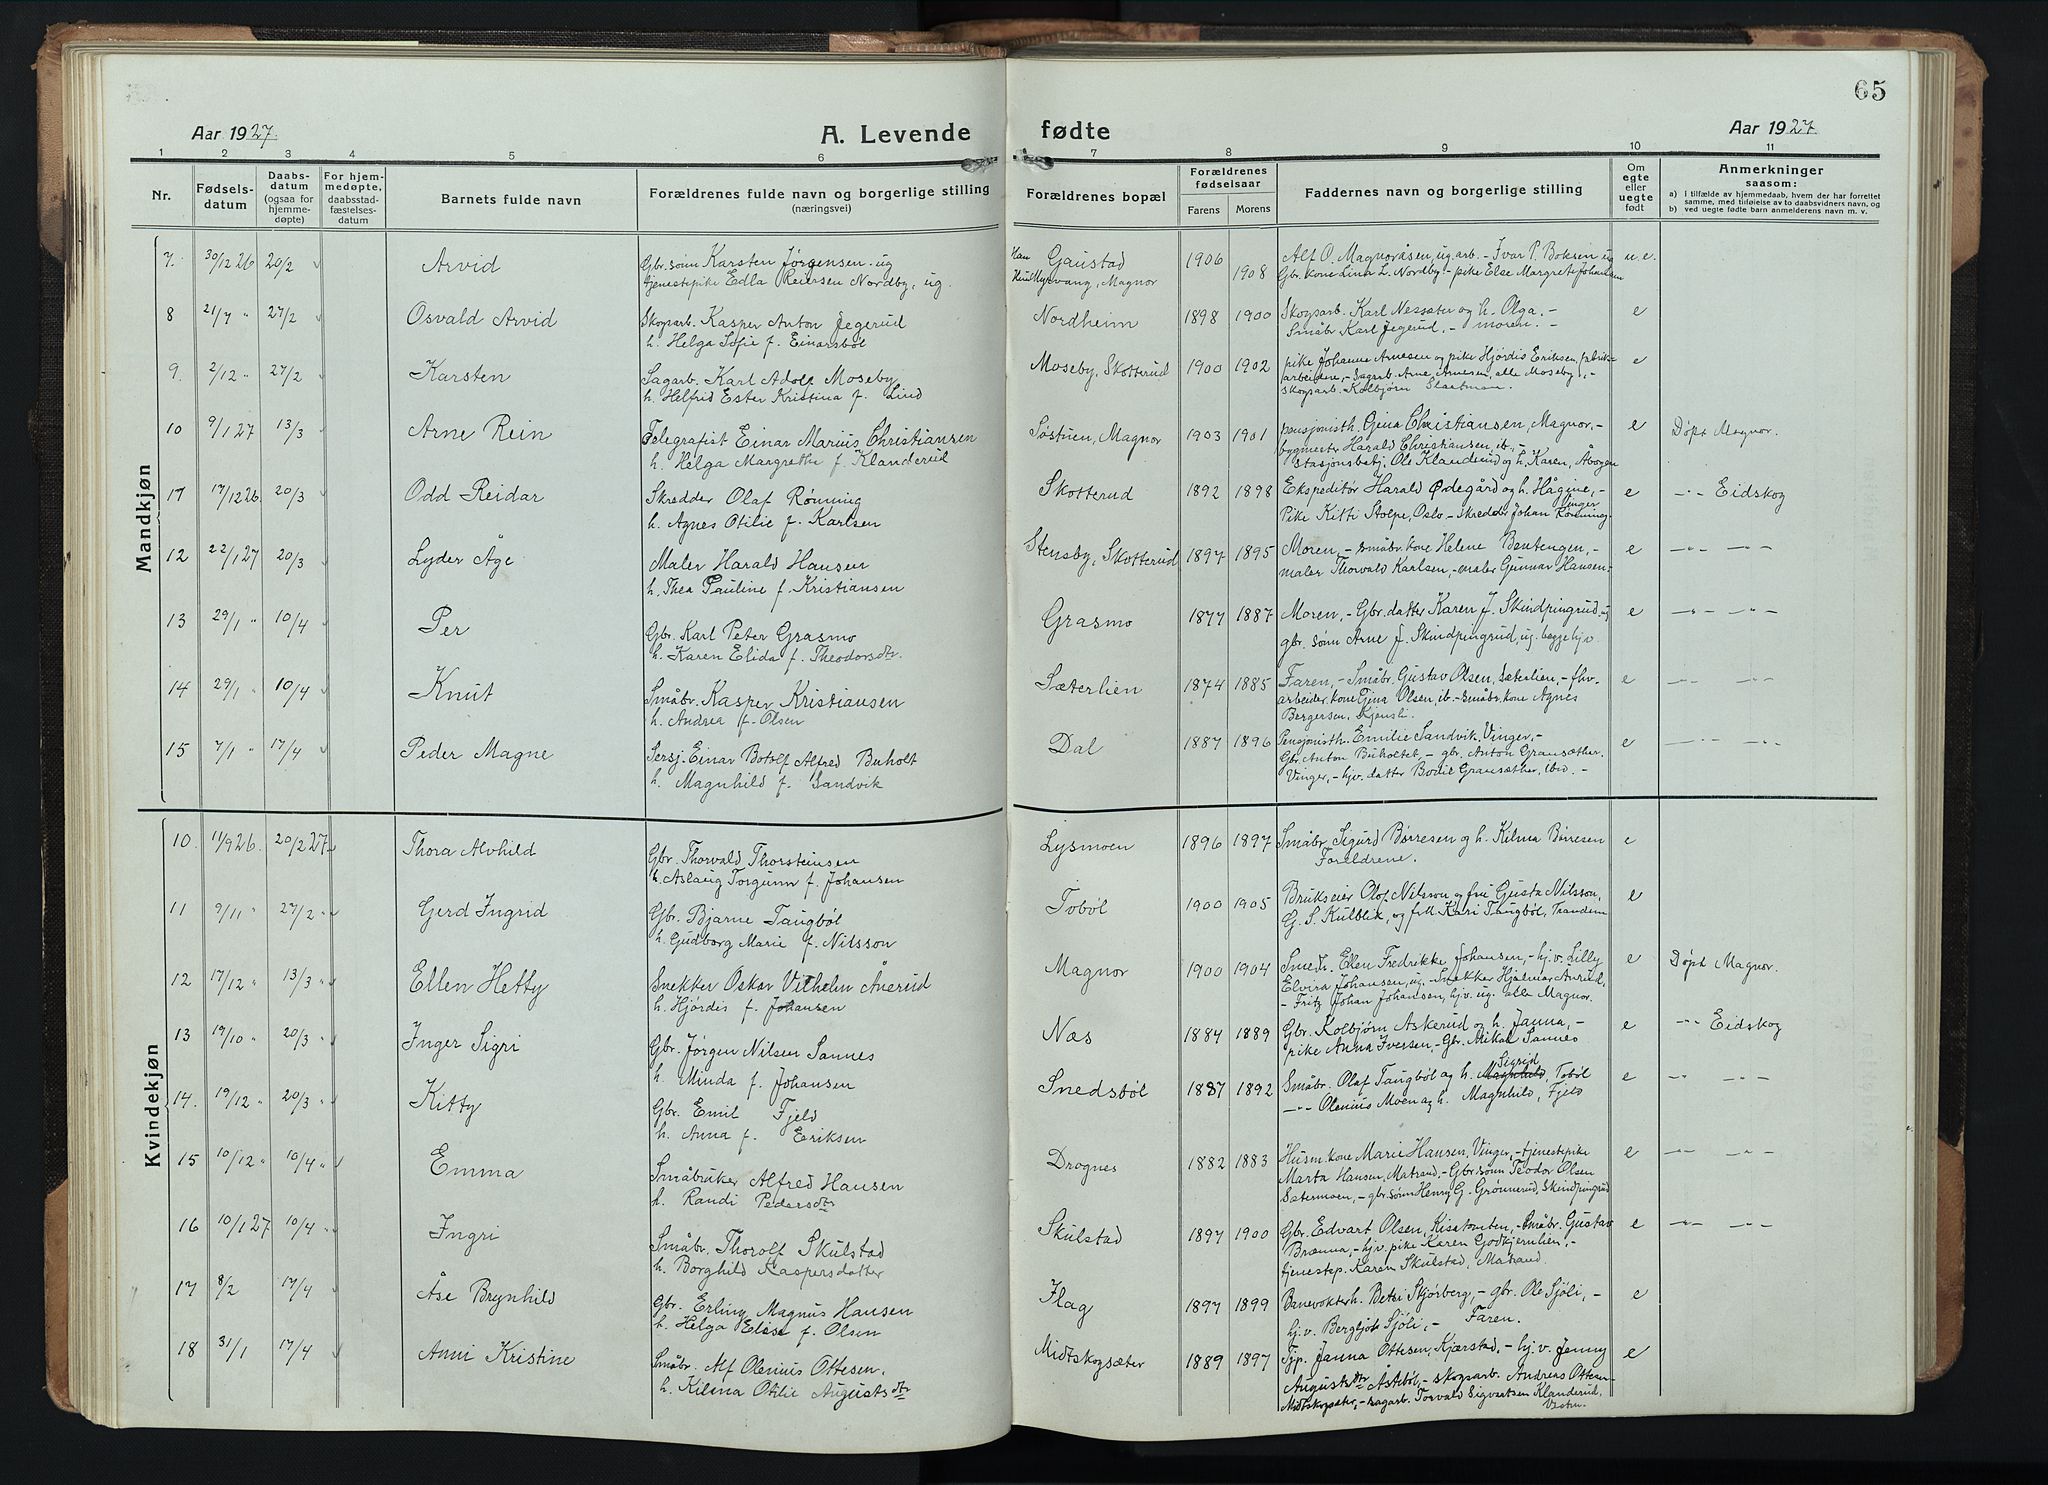 65
Aar 1927. A. Levende fødte Aar 1927.
1 2 3 4 5 6 7 8 9 10 11
Nr. Fødsels-datum Daabs-datum (ogsaa for hjemme-døpte) For hjem-medøpte, daabsstad-fæstelses-datum Barnets fulde navn Forældrenes fulde navn og borgerlige stilling (næringsvei) Forældrenes bopæl Forældrenes fødselsaar Farens Morens Faddernes navn og borgerlige stilling Om egte eller uegte født Anmerkninger saasom:
a) i tilfælde av hjemmedaab, hvem der har forrettet samme, med tilføielse av to daabsvidners navn, og
b) ved uegte fødte barn anmelderens navn m. v.
Mandkjøn
7. 30/12 26 20/2 Arvid Gbr. sønn Karsten Jørgensen. ug Han Gaustad 1906 Alf O. Magnordsen, ug. arb. - Ivar P. Boksen ug u.e.
tjenestepike Edla Reiersen Nordby, ug. Hun Myrvang, Magnor 1908 Gbr. kone Lina L. Nordby - pike Else Margrete Johansen
8 21/7 " 27/2 Osvald Arvid Skogsarb. Kasper Anton Jegerud Nordheim 1898 1900 Skogsarb. Karl Nessæter og h. Olga. - e
h. Helga Sofie f. Einarsbøl Småbr. Karl Jegerud, - moren. -
9. 2/12 " 27/2 Karsten Sagarb. Karl Adolf Moseby Moseby, Skotterud 1900 1902 pike Johanne Arnesen og pike Hjørdis Eriksen, fabrik- e
h. Helfrid Ester Kristina f. Lind arbeidere, - Sagarb. Arne Arnesen, alle Moseby, -
skogsarb. Kolbjørn Slaatman.
10 9/1 27 13/3 Arne Rein Telegrafist Einar Marius Christiansen Søstuen, Magnor 1903 1901 pensjonisth. Gjena Christiansen, Magnor, - e Døpt Magnor.
h. Helga Margrethe f. Klanderud bygmester Harald Christiansen, ib, -
stasjonsbetj. Ole Klanderud og h. Karen, Åbogen
17 17/12 26. 20/3 Odd Reidar Skredder Olaf Rønning Skotterud 1892 1898 Ekspeditør Harald Ødegård og h. Hågine, - e -"- Eidskog
h. Agnes Otilie f. Karlsen Pike Kitti Stolpe, Oslo - skredder Johan Rønning, Vinger
12 22/1 27 20/3 Lyder Åge Maler Harald Hansen Stensby, Skotterud 1897 1895 Moren, - småbr. kone Helene Bentengen, - e -"- -"-
h. Thea Pauline f. Kristiansen maler Thorvald Karlsen, - maler Gunnar Hansen -
13 29/1 " 10/4 Per Gbr. Karl Peter Grasmo Grasmo 1877 1887 Moren, - Gbr. datter Karen J. Skindpingrud. ug e -"- -"-
h. Karen Elida f. Theodorsdtr. gbr. sønn Arne J. Skindpingrud, ug. begge hjv.
14 29/1 " 10/4 Knut Småbr. Kasper Kristiansen Sæterlien 1874 1885 Faren, - Småbr. Gustav Olsen, Sæterlien, - e -"- -"-
h. Andrea f. Olsen arbeider kone Gina Olsen ib. - småbr. kone Agnes
Bergersen, Kjensli.
15 7/1 " 17/4 Peder Magne Sersj. Einar Botolf Alfred Buholt Dal 1887 1896 Pensjonisth. Emilie Sandvik, Vinger, - e -"- -"-
h. Magnhild f. Sandvik Gbr. Anton Buholtet - gbr. Anton Gransæther.
Vinger, - hjv. datter Bodil Gransæther, ibid. -
Kvindekjøn
10. 11/9 26. 20/2 27. Thora Alvhild Gbr. Thorvald Thorsteinsen Lysmoen 1896 1897 Småbr. Sigurd Børresen og h. Kilma Børresen e
h. Aslaug Torgunn f. Johansen Foreldrene.
11 9/11 " 27/2 " Gerd Ingrid Gbr. Bjarne Taugbøl Tobøl 1900 1905 Brukseier Olof Nilsson og fru Gusta Nilsson, e
h. Gudborg Marie f. Nilsson G. S. Kulblik, og frk Kari Taugbøl, Trandem
12 17/12 " 13/3 " Ellen Hetty Snekker Oskar Vilhelm Åverud Magnor 1900 1904 Smedh. Ellen Fredrikke Johansen, - hj.v. Lilly e Døpt Magnor.
h. Hjørdis f. Johansen Elvira Johansen, ug. - Snekker Hjalmar Averud,
- Fritz Johan Johansen, hj.v. ug. alle Magnor.
13 19/10 " 20/3 " Inger Sigri Gbr. Jørgen Nilsen Sannes Næs 1884 1889 Gbr. Kolbjørn Askerud og h. Janna, - e -"- Eidskog
h. Minda f. Johansen pike Anna Iversen, - Gbr. Mikal Sannes
14. 19/12 " 20/3 " Kitty Gbr. Emil Fjeld Snedsbøl 1887 1892 Småbr. Olaf Taugbøl og h. Magnhild, Sigrid Tobøl e -"- -"-
h. Anna f. Eriksen -"- Olenius Moen og h. Magnhild, Fjeld
15 10/12 " 10/4 " Emma Småbruker Alfred Hansen Drognes 1882 1883 Husm. kone Marie Hansen, Vinger, - tjenestepike e -"- -"-
h. Randi Pedersdtr Marta Hansen, Matrand, - Gbr. sønn Teodor Olsen
Sætermoen, - gbr. sønn Henry G. Grønnerud, Skindpingrud
16 10/1 27 10/4 " Ingri Småbr. Thorolf Skulstad Skulstad 1897 1900 Gbr. Edvart Olsen, Kisatomten, - Småbr. Gustav e -"- -"-
h. Borghild Kaspersdatter Brænna, - hj.v. pike Karen Godkjernlien, -
tjenestep. Karen Skulstad, Matrand.
17 8/2 17/4 Åse Brynhild Gbr. Erling Magnus Hansen Flag 1897 1899 Banevokterh. Betzi Skjørberg, - gbr. Ole Sjøli, - e
h. Helga Elise f. Olsen hj.v. Bergljot Sjøli, - Faren.
18 31/1 17/4 Anni Kristine Småbr. Alf Olenius Ottesen. Midtskogsæter 1889 1897 Tjp. Janna Ottesen, Kjærstad, - hj.v. Jenny e
h. Kilma Otilie Augustsdtr Augustsdtr Åstebøl, - skogsarb. Andreas Ottesen
Midtskogsæter, - sagarb. Torvald Sigvartsen Klanderud,
Vestm.